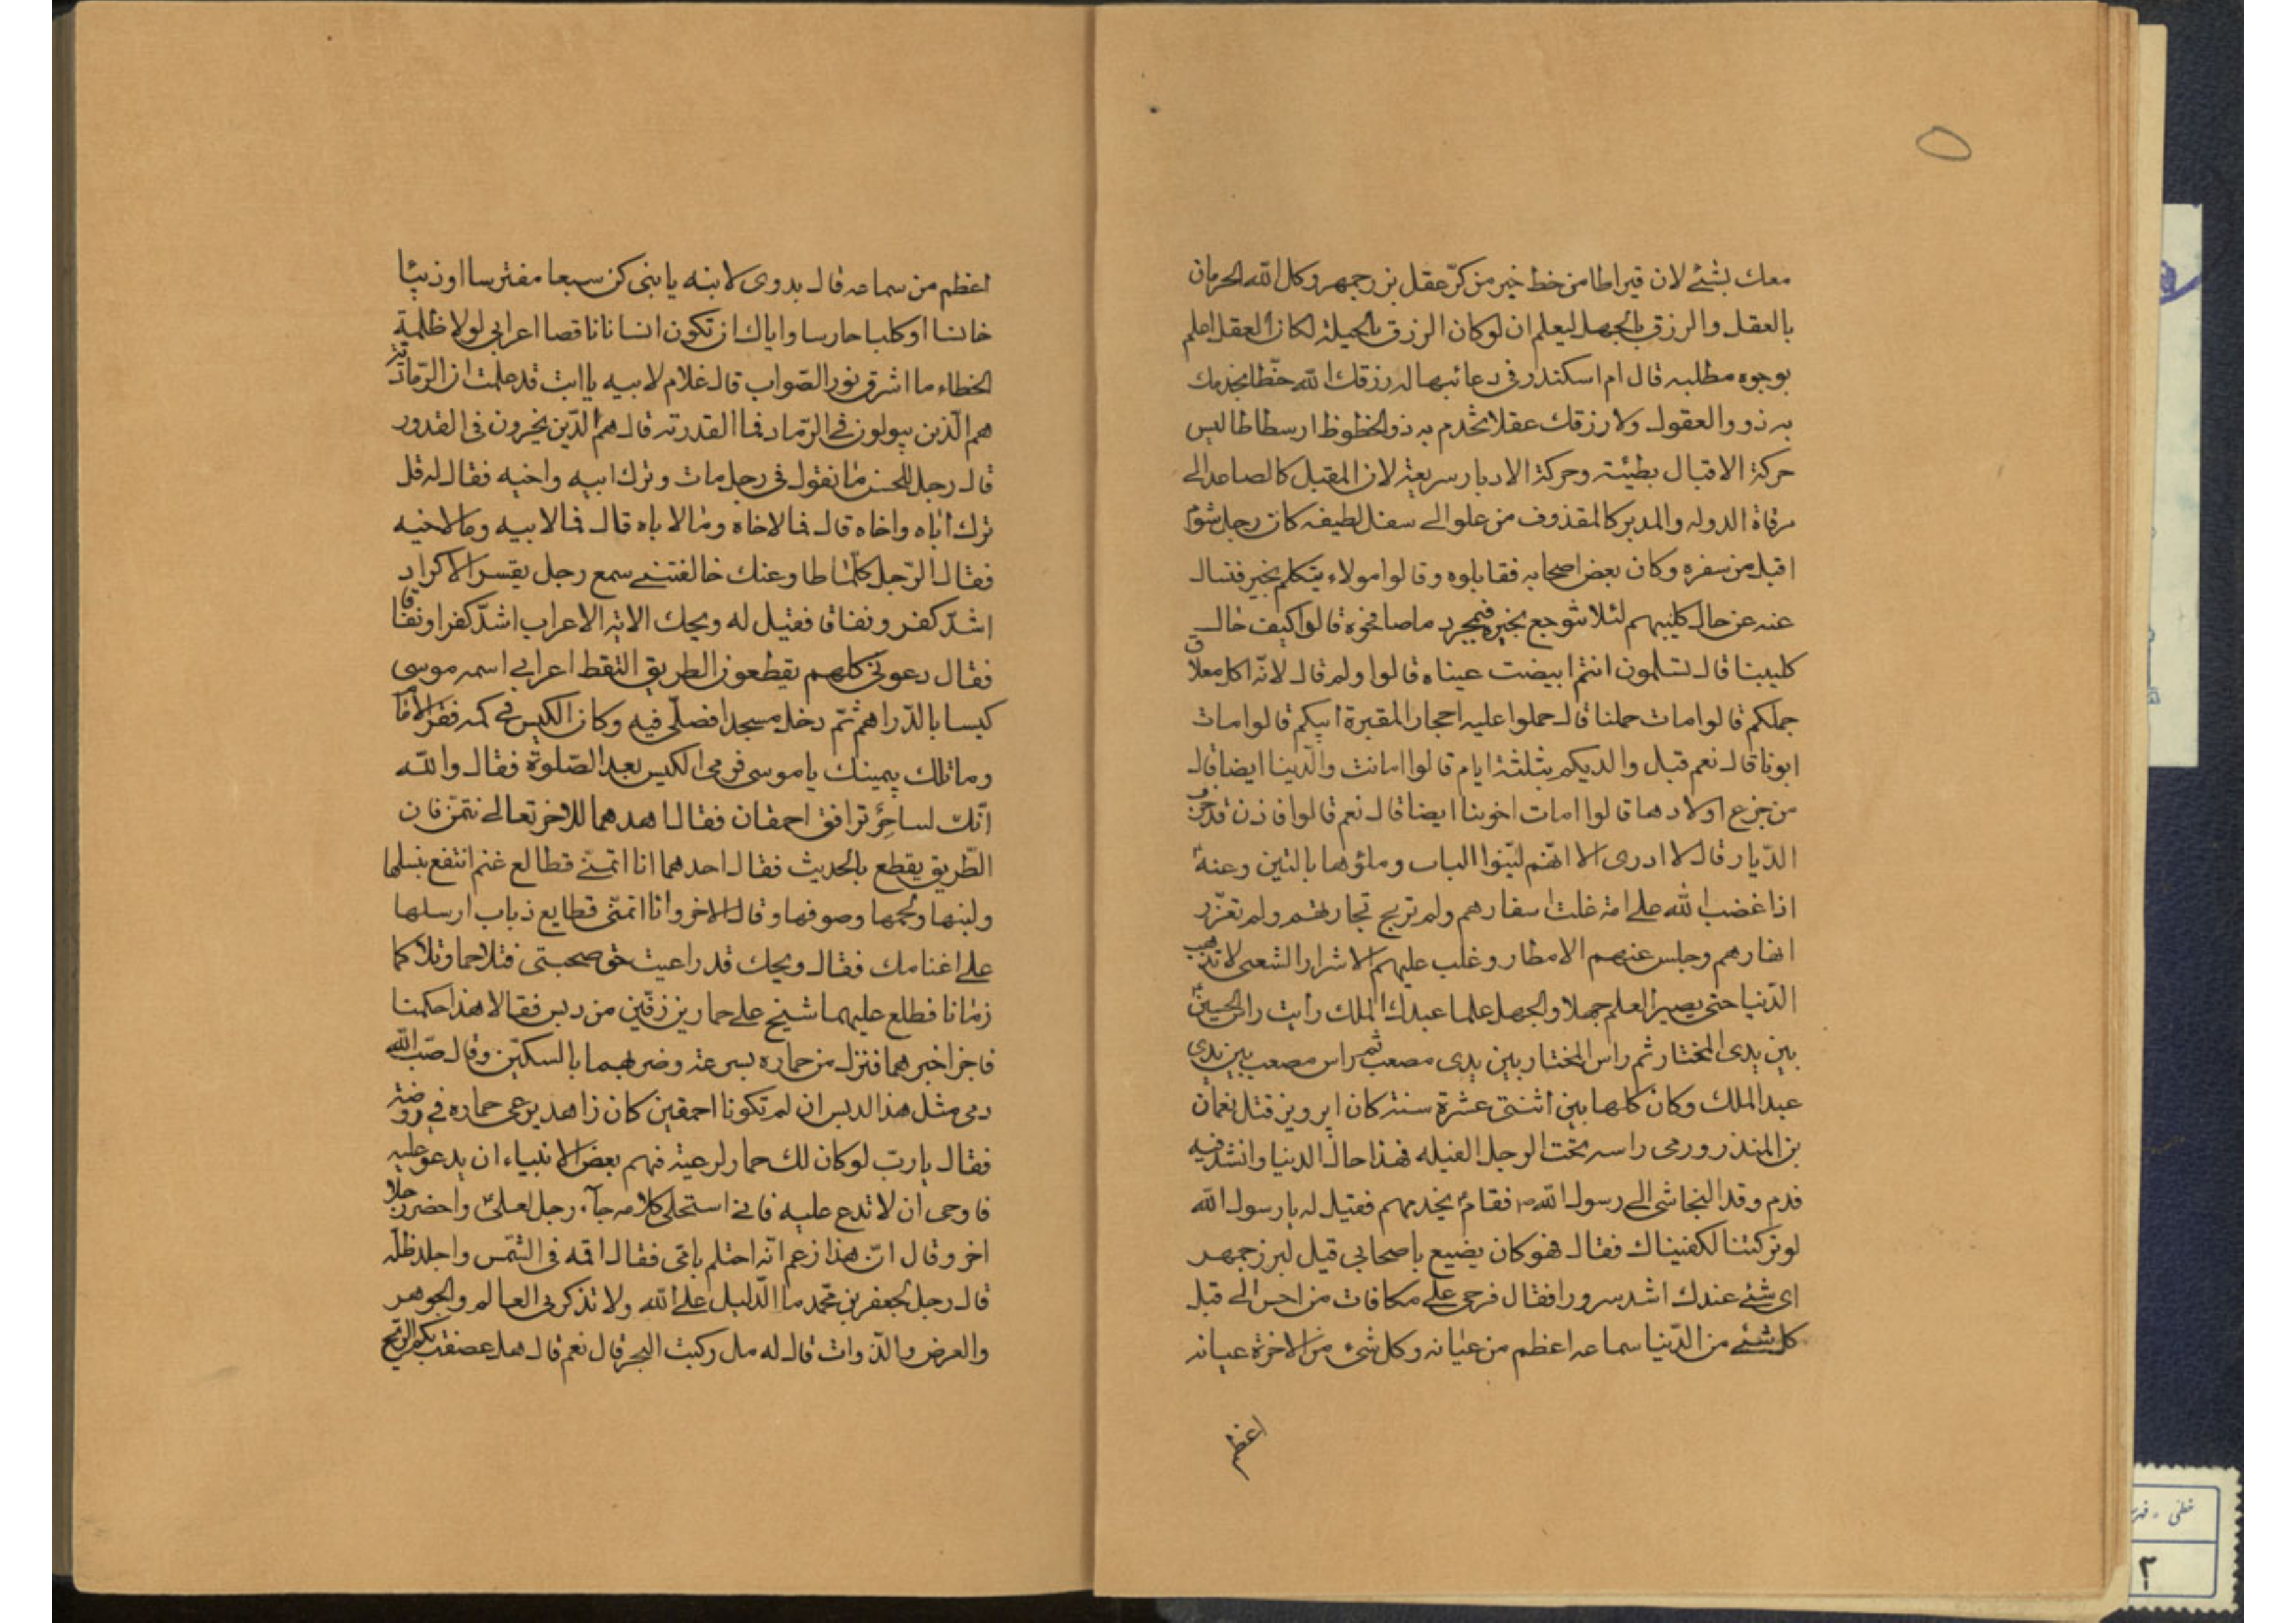 معك بشئ لان قيراطا من خط خير من كرّ عقل بزرجمهر وكل الله الحرمان
بالعقل والرزق بالجهل ليعلم ان لو كان الرزق بالحيلة لكان العقل اعلم
بوجوه مطلبه قال ام اسكندر في دعائها له رزقك الله حظّا يخدمك
به ذوو العقول ولا رزقك عقلا تخدم به ذو الحظوظ ارسطاطاليس
حركة الاقبال بطيئة وحركة الادبار سريعة لان المقبل كالصاعد الى
مرقاة الدوله والمدبر كالمقذوف من علو الى سفل لطيفه كان رجل شوم
اقبل من سفره وكان بعض اصحابه فقابلوه وقالوا مولاء يتكلم بخير فنسال
عنه عن حال كليبهم لئلا توجع بخيره فبمجرد ما صافحوه قالوا كيف حال
كليبنا قال تسلمون انتم ابيضت عيناه قالوا ولم قال لانّه اكل معلاق
جملكم قالوا مات جملنا قال حملوا عليه احجار المقبرة ابيكم قالوا مات
ابونا قال نعم قبل والديكم بثلثة ايام قالوا امانت والدينا ايضا قال
من جزع اولادها قالوا امات اخوينا ايضا قال نعم قالوا فاذن قد خرب
الدّيار قال لا ادرى الا انّهم ليّنوا الباب وملؤها بالتين وعنه
اذا غضب الله على امة غلت اسفارهم ولم تربح تجارتهم ولم تغزر
انهارهم وجلس عنهم الامطار وغلب عليهم الاشرار الشعبى لا تذهب
الدّنيا حتى يصير العلم جهلا والجهل علما عبدك الملك رأيت راس الحسين
بين يدى المختار ثم راس المختار بين يدى مصعب ثم راس مصعب بين يدى
عبد الملك وكان كلها بين اثنتى عشرة سنة كان ابرويز قتل نعمان
بن المنذر ورمى راسه تحت الرجل الفيله فهذا حال الدنيا وانشد فيه
قدم وقد النجاشى الى رسول الله ص فقام يخدمهم فقيل له يا رسول الله
لو تركتنا لكفيناك فقال هو كان يضيع باصحابي قيل لبرزجمهر
اى شئ عندك اشد سرورا فقال فرحى على مكافات من احسن الى قبل
كل شئ من الدّنيا سماعه اعظم من عيانه وكل شئ من الاخرة عيانه
اعظم
اعظم من سماعه قال بدوى لابنه يا بنى كن سبعا مفترسا او ذيبّا
خانسا او كلبا حارسا واياك ان تكون انسانا ناقصا اعرابي لولا ظلمة
الخطاء ما اشرق نور الصّواب قال غلام لابيه يا ابت قد علمت ان الرّمادية
هم الّذين يبولون في الرّماد فما القدرية قال هم الّذين يخرون في القدور
قال رجل للحسن ما تقول في رجل مات وترك ابيه واخيه فقال له قل
ترك اباه واخاه قال فما لاخاه وما لاباه قال فما لابيه وما لاخيه
فقال الرّجل كلّما طاوعنك خالفتنى سمع رجل يفسر الاكراد
اشدّ كفر ونفاق فقيل له ويحك الاية الاعراب اشدّ كفرا ونفاقا
فقال دعونى كلهم يقطعون الطريق التقط اعرابي اسمه موسى
كيسا بالدّراهم ثمّ دخل مسجدا فصلّى فيه وكان الكيس في كمه فقرا الامام
وما تلك بيمينك يا موسى فرمى الكيس بعد الصّلوة فقال والله
انّك لساحر ترافق احمقان فقال احدهما للاخر تعالى نتمنّ فان
الطّريق يقطع بالحديث فقال احدهما انا اتمنّى قطالع غنم انتفع بنسلها
ولبنها ولحمها وصوفها وقال الاخر وانا اتمنّى قطايع ذباب ارسلها
على اغنامك فقال ويحك قد راعيت حق صحبتى فتلاحما وتلاكما
زمانا فطلع عليهما شيخ على حمار بين زقّين من دبس فقالا هذا حكمنا
فاجز اخبرهما فنزل من حماره بسرعة وضربهما بالسكين وقال صبّ الله
دمى مثل هذا الدبس ان لم تكونا احمقين كان زاهد يرعى حماره في روضة
فقال يا ربّ لو كان لك حمار لرعيته فهم بعض الانبياء ان يدعو عليه
فاوحى ان لا تدع عليه فانى استحلى كلامه جآء رجل لعلىّ واحضر رجلا
اخر وقال انّ هذا زعم انّه احتلم بامّى فقال اقمه فى الشّمس واجلد ظلّه
قال رجل لجعفر بن محّمد ما الّدليل على الله ولا تذكر لى العالم والجوهر
والعرض والذّوات قال له هل ركبت البحر قال نعم قال هل عصفت بكم الرّيح
خطى - فهر
٢